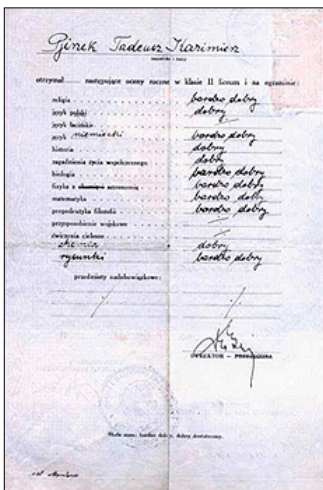 Ginek Tadeusz Kazimierz
otrzymał następujące oceny roczne w klasie II liceum i na egzaminie:
religia bardzo dobry
język polski dobry
język łaciński —
język niemiecki bardzo dobry
historia dobry
zagadnienia życia współczesnego dobry
biologia bardzo dobry
fizyka z astronomią bardzo dobry
matematyka bardzo dobry
propedeutyka filozofii bardzo dobry
przysposobienie wojskowe —
ćwiczenia cielesne —
chemia dobry
rysunki bardzo dobry
przedmioty nadobowiązkowe:
DYREKTOR — PRZEŁOŻONA
Skala ocen: bardzo dobry, dobry, dostateczny.